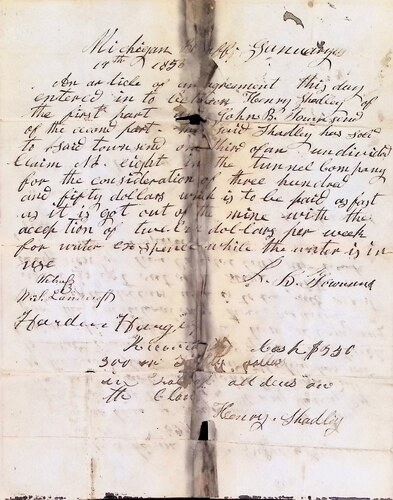 Michigan Bluffs January
14th 1856
An article of an agreement this day
entered in to between Henry Shadley of
the first part John B. Townsend
of the second part the Said Shadley has sold
to Said townsend one third of an undivided
Claim No. eight in the tunnel Company
for the consideration of three hundred
and fifty dollars which is to be paid as fast
as it is got out of the mine with the
acception of twelve dollars per week
for water expence while the water is in
use
J. B. Townsend
Witness
Harden
Received Cash $350
300 in
all dews on
the Claim
Henry Shadley